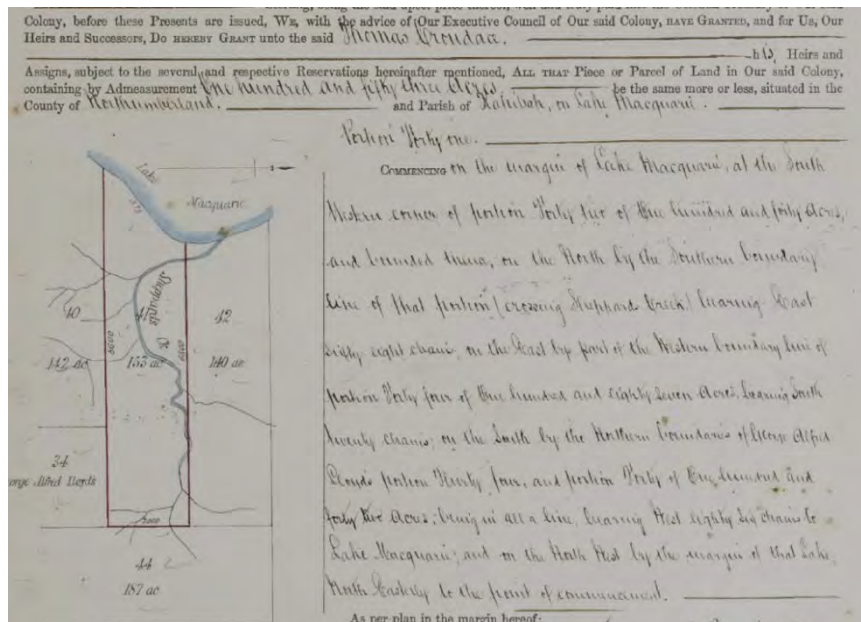 Colony, before these Presents are issued, WE, with the advice of Our Executive Council of Our said Colony, HAVE GRANTED, and for Us, Our
Heirs and Successors, DO HEREBY GRANT unto the said Thomas Croudace.
his Heirs and
Assigns, subject to the several and respective Reservations hereinafter mentioned, ALL THAT Piece or Parcel of Land in Our said Colony,
containing by Admeasurement One hundred and fifty three Acres, be the same more or less, situated in the
County of Northumberland. and Parish of Kahibah, on Lake Macquarie.
Portion Forty one.
COMMENCING on the margin of Lake Macquarie, at the South
Western corner of portion Forty two of One hundred and forty Acres,
and bounded thence, on the North by the Southern boundary
line of that portion (crossing Sheppards Creek) bearing East
sixty eight chains; on the East by part of the Western boundary line of
portion Forty four of One hundred and eighty seven Acres, bearing South
twenty chains; on the South by the Northern boundaries of George Alfred
Lloyds portion Thirty four, and portion Forty of One hundred and
forty two Acres; being in all a line, bearing West eighty six chains to
Lake Macquarie; and on the North West by the margin of that Lake,
North Easterly to the point of commencement.
As per plan in the margin hereof:
Lake
Macquarie
Sheppards
Ck
40
41
42
142 ac
153 ac
140 ac
8600
6800
34
orge Alfred Lloyds
2000
44
187 ac